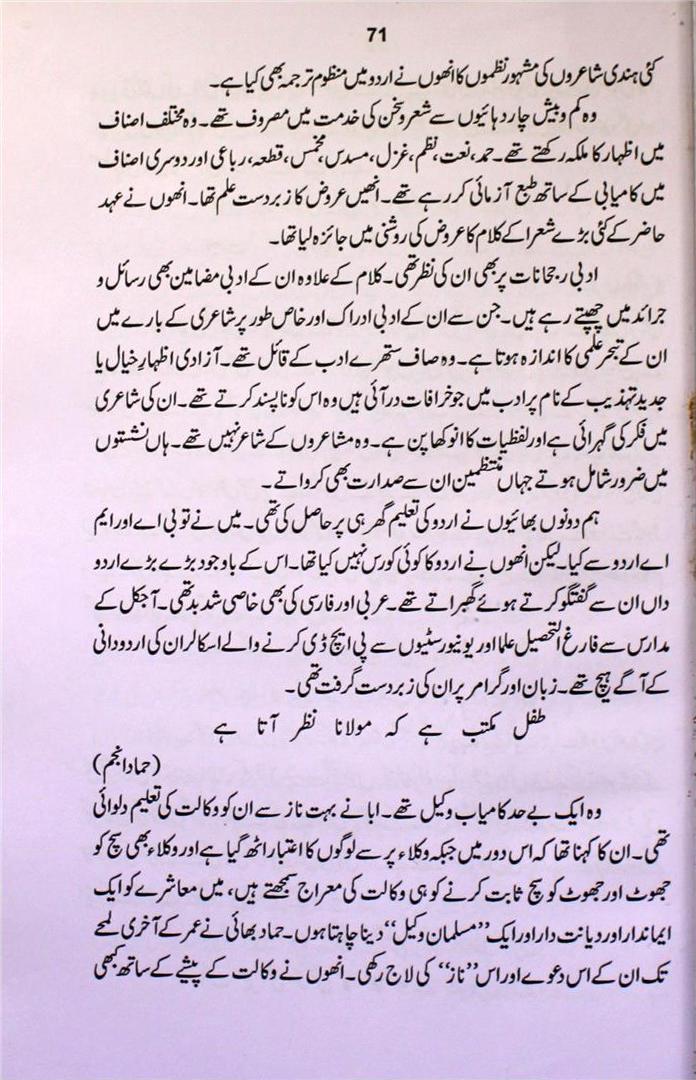 71
کئی ہندی شاعروں کی مشہور نظموں کا انھوں نے اردو میں منظوم ترجمہ بھی کیا ہے۔
وہ کم و بیش چار دہائیوں سے شعر و سخن کی خدمت میں مصروف تھے۔ وہ مختلف اصناف
میں اظہار کا ملکہ رکھتے تھے۔ حمد، نعت، نظم، غزل، مسدس، مخمس، قطعہ، رباعی اور دوسری اصناف
میں کامیابی کے ساتھ طبع آزمائی کر رہے تھے۔ انھیں عروض کا زبردست علم تھا۔ انھوں نے عہد
حاضر کے کئی بڑے شعرا کے کلام کا عروض کی روشنی میں جائزہ لیا تھا۔
ادبی رجحانات پر بھی ان کی نظر تھی۔ کلام کے علاوہ ان کے ادبی مضامین بھی رسائل و
جرائد میں چھپتے رہے ہیں۔ جن سے ان کے ادبی ادراک اور خاص طور پر شاعری کے بارے میں
ان کے تبحر علمی کا اندازہ ہوتا ہے۔ وہ صاف ستھرے ادب کے قائل تھے۔ آزادی اظہار خیال یا
جدید تہذیب کے نام پر ادب میں جو خرافات در آئی ہیں وہ اس کو ناپسند کرتے تھے۔ ان کی شاعری
میں فکر کی گہرائی ہے اور لفظیات کا انوکھا پن ہے۔ وہ مشاعروں کے شاعر نہیں تھے۔ ہاں نشستوں
میں ضرور شامل ہوتے جہاں منتظمین ان سے صدارت بھی کرواتے۔
ہم دونوں بھائیوں نے اردو کی تعلیم گھر ہی پر حاصل کی تھی۔ میں نے تو بی اے اور ایم
اے اردو سے کیا۔ لیکن انھوں نے اردو کا کوئی کورس نہیں کیا تھا۔ اس کے باوجود بڑے بڑے اردو
داں ان سے گفتگو کرتے ہوئے گھبراتے تھے۔ عربی اور فارسی کی بھی خاصی شد بد تھی۔ آجکل کے
مدارس سے فارغ التحصیل علما اور یونیورسٹیوں سے پی ایچ ڈی کرنے والے اسکالر ان کی اردو دانی
کے آگے ہیچ تھے۔ زبان اور گرامر پر ان کی زبردست گرفت تھی۔
طفل مکتب ہے کہ مولانا نظر آتا ہے
(حماد انجم)
وہ ایک بے حد کامیاب وکیل تھے۔ ابا نے بہت ناز سے ان کو وکالت کی تعلیم دلوائی
تھی۔ ان کا کہنا تھا کہ اس دور میں جبکہ وکلاء پر سے لوگوں کا اعتبار اٹھ گیا ہے اور وکلاء بھی سچ کو
جھوٹ اور جھوٹ کو سچ ثابت کرنے کو ہی وکالت کی معراج سمجھتے ہیں، میں معاشرے کو ایک
ایماندار اور دیانت دار اور ایک ”مسلمان وکیل“ دینا چاہتا ہوں۔ حماد بھائی نے عمر کے آخری لمحے
تک ان کے اس دعوے اور اس ”ناز“ کی لاج رکھی۔ انھوں نے وکالت کے پیشے کے ساتھ کبھی